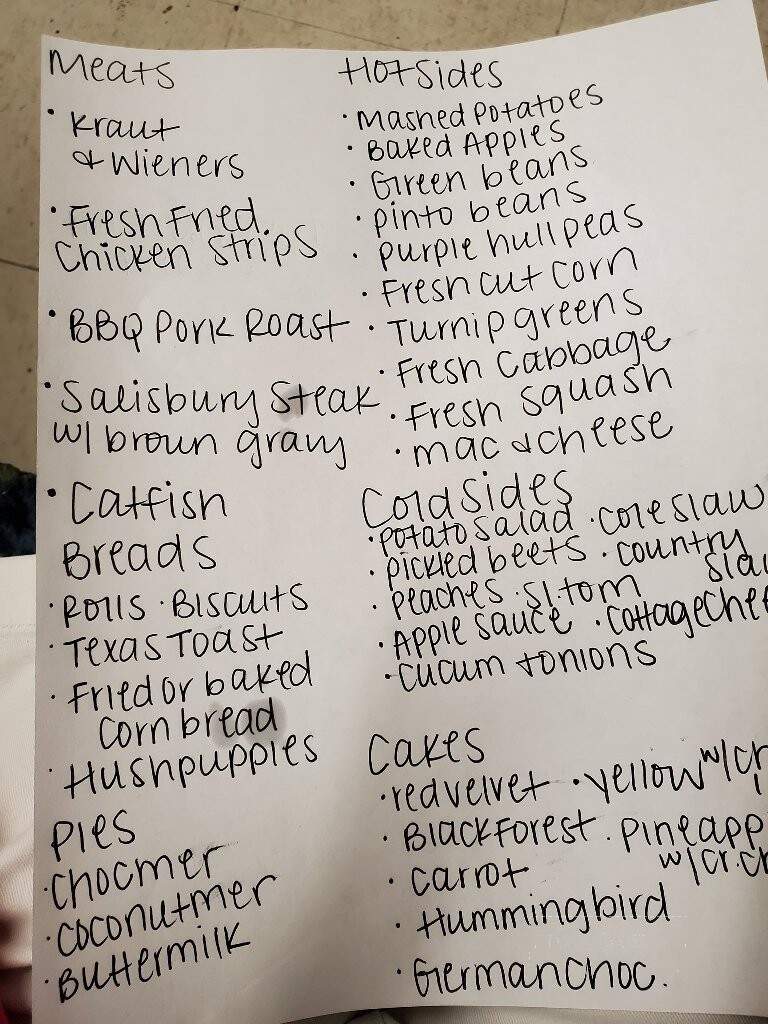 Meats
• Kraut
& Wieners
• Fresh Fried
Chicken Strips
• BBQ Pork Roast
• Salisbury Steak
w/ broun gravy
• Catfish
Breads
• Rolls • Biscuits
• Texas Toast
• Fried or baked
Corn bread
• Hushpuppies
Pies
• Chocmer
• Coconutmer
• Buttermilk
Hot Sides
• Mashed Potatoes
• Baked Apples
• Green beans
• pinto beans
• purple hull peas
• Fresh cut corn
• Turnip greens
• Fresh Cabbage
• Fresh squash
• mac & cheese
Cold Sides
• potato salad • cole slaw
• pickled beets • country
slaw
• peaches • sl. tom
• Apple sauce • Cottage Chee
• Cucum + onions
Cakes
• red velvet • yellow w/ch
• Black Forest • pineapp
w/cr.ch
• carrot
• Hummingbird
• German choc.